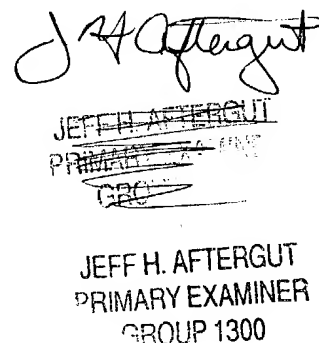 J H Aftergut
JEFF H. AFTERGUT
PRIMARY EXAMINE
GRO
JEFF H. AFTERGUT
PRIMARY EXAMINER
GROUP 1300